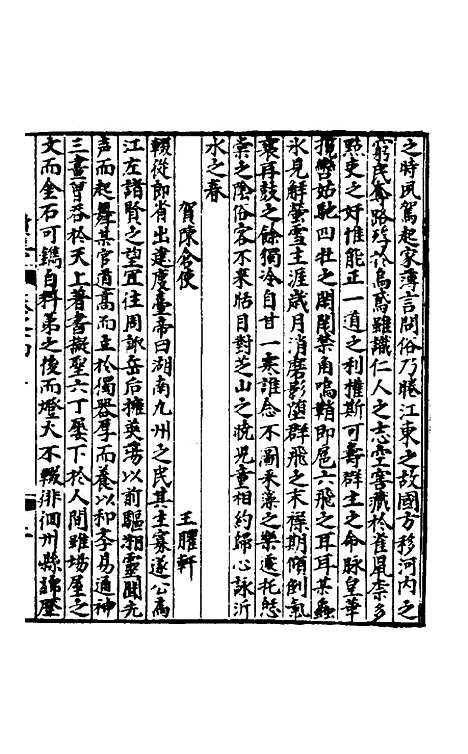 之時夙駕起家薄言問俗乃睠江東之故國方移河內之
窮民奪路殍於烏鳶雖識仁人之志空窖藏於雀鼠柰多
黠吏之奸惟能正一道之利權斯可壽群生之命脉皇華
攬轡姑馳四牡之閑閶闔禁角鳴鞘即扈六飛之耳耳某蟲
氷見解螢雪生涯歲月消磨影墮群飛之末襟期傾倒氣
衰再鼓之餘獨冷自甘一寒誰念不圖采藻之樂遽托憩
棠之陰俗客不来怗目對芝山之晩兒童相約歸心詠沂
水之春
賀陳倉使 王臞軒
輟從郎省出建度臺帝曰湖南九州之民其生寡遂公為
江左諸賢之望宜往周諏岳后擁英蕩以前驅湘靈聞先
声而起舞某官道高而主於獨器厚而養以和孝易通神
三畫曾吞於天上著書擬聖六丁屢下於人間雖場屋之
文而金石可鐫自科第之後而燈火不輟徘徊州縣歸歷